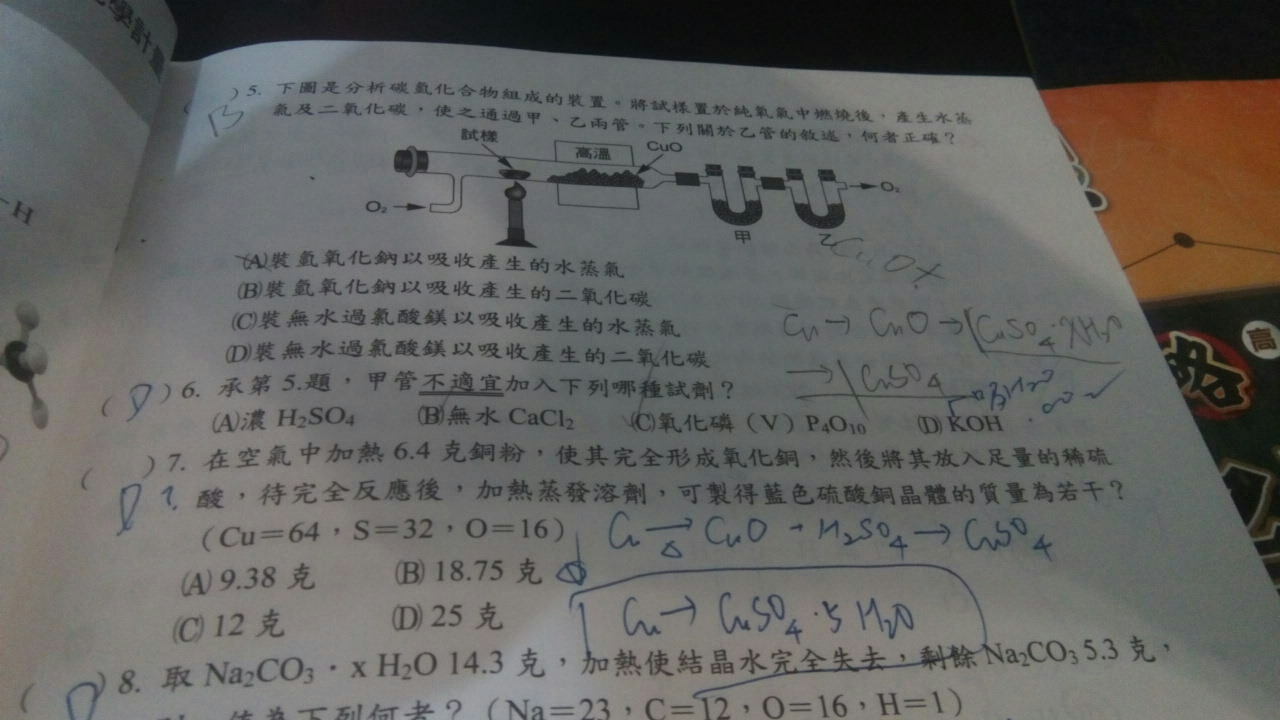 學計算
( B )5. 下圖是分析碳氫化合物組成的裝置。將試樣置於純氧氣中燃燒後，產生水蒸
氣及二氧化碳，使之通過甲、乙兩管。下列關於乙管的敘述，何者正確？
試樣
高溫
CuO
O₂
O₂
甲
乙
CuOx
(A)裝氫氧化鈉以吸收產生的水蒸氣
(B)裝氫氧化鈉以吸收產生的二氧化碳
(C)裝無水過氯酸鎂以吸收產生的水蒸氣
(D)裝無水過氯酸鎂以吸收產生的二氧化碳
Cu → CuO → CuSO₄·XH₂O
→ CuSO₄
( D )6. 承第 5.題，甲管不適宜加入下列哪種試劑？
(A)濃 H₂SO₄ (B)無水 CaCl₂ (C)氧化磷（V）P₄O₁₀ (D) KOH
( D ? )7. 在空氣中加熱 6.4 克銅粉，使其完全形成氧化銅，然後將其放入足量的稀硫
酸，待完全反應後，加熱蒸發溶劑，可製得藍色硫酸銅晶體的質量為若干？
（Cu＝64，S＝32，O＝16）
Cu → CuO + H₂SO₄ → CuSO₄
Δ
(A) 9.38 克 (B) 18.75 克
(C) 12 克 (D) 25 克
Cu → CuSO₄·5 H₂O
( D )8. 取 Na₂CO₃・x H₂O 14.3 克，加熱使結晶水完全失去，剩餘 Na₂CO₃ 5.3 克，
值為下列何者？（Na＝23，C＝12，O＝16，H＝1）
－H
高
略